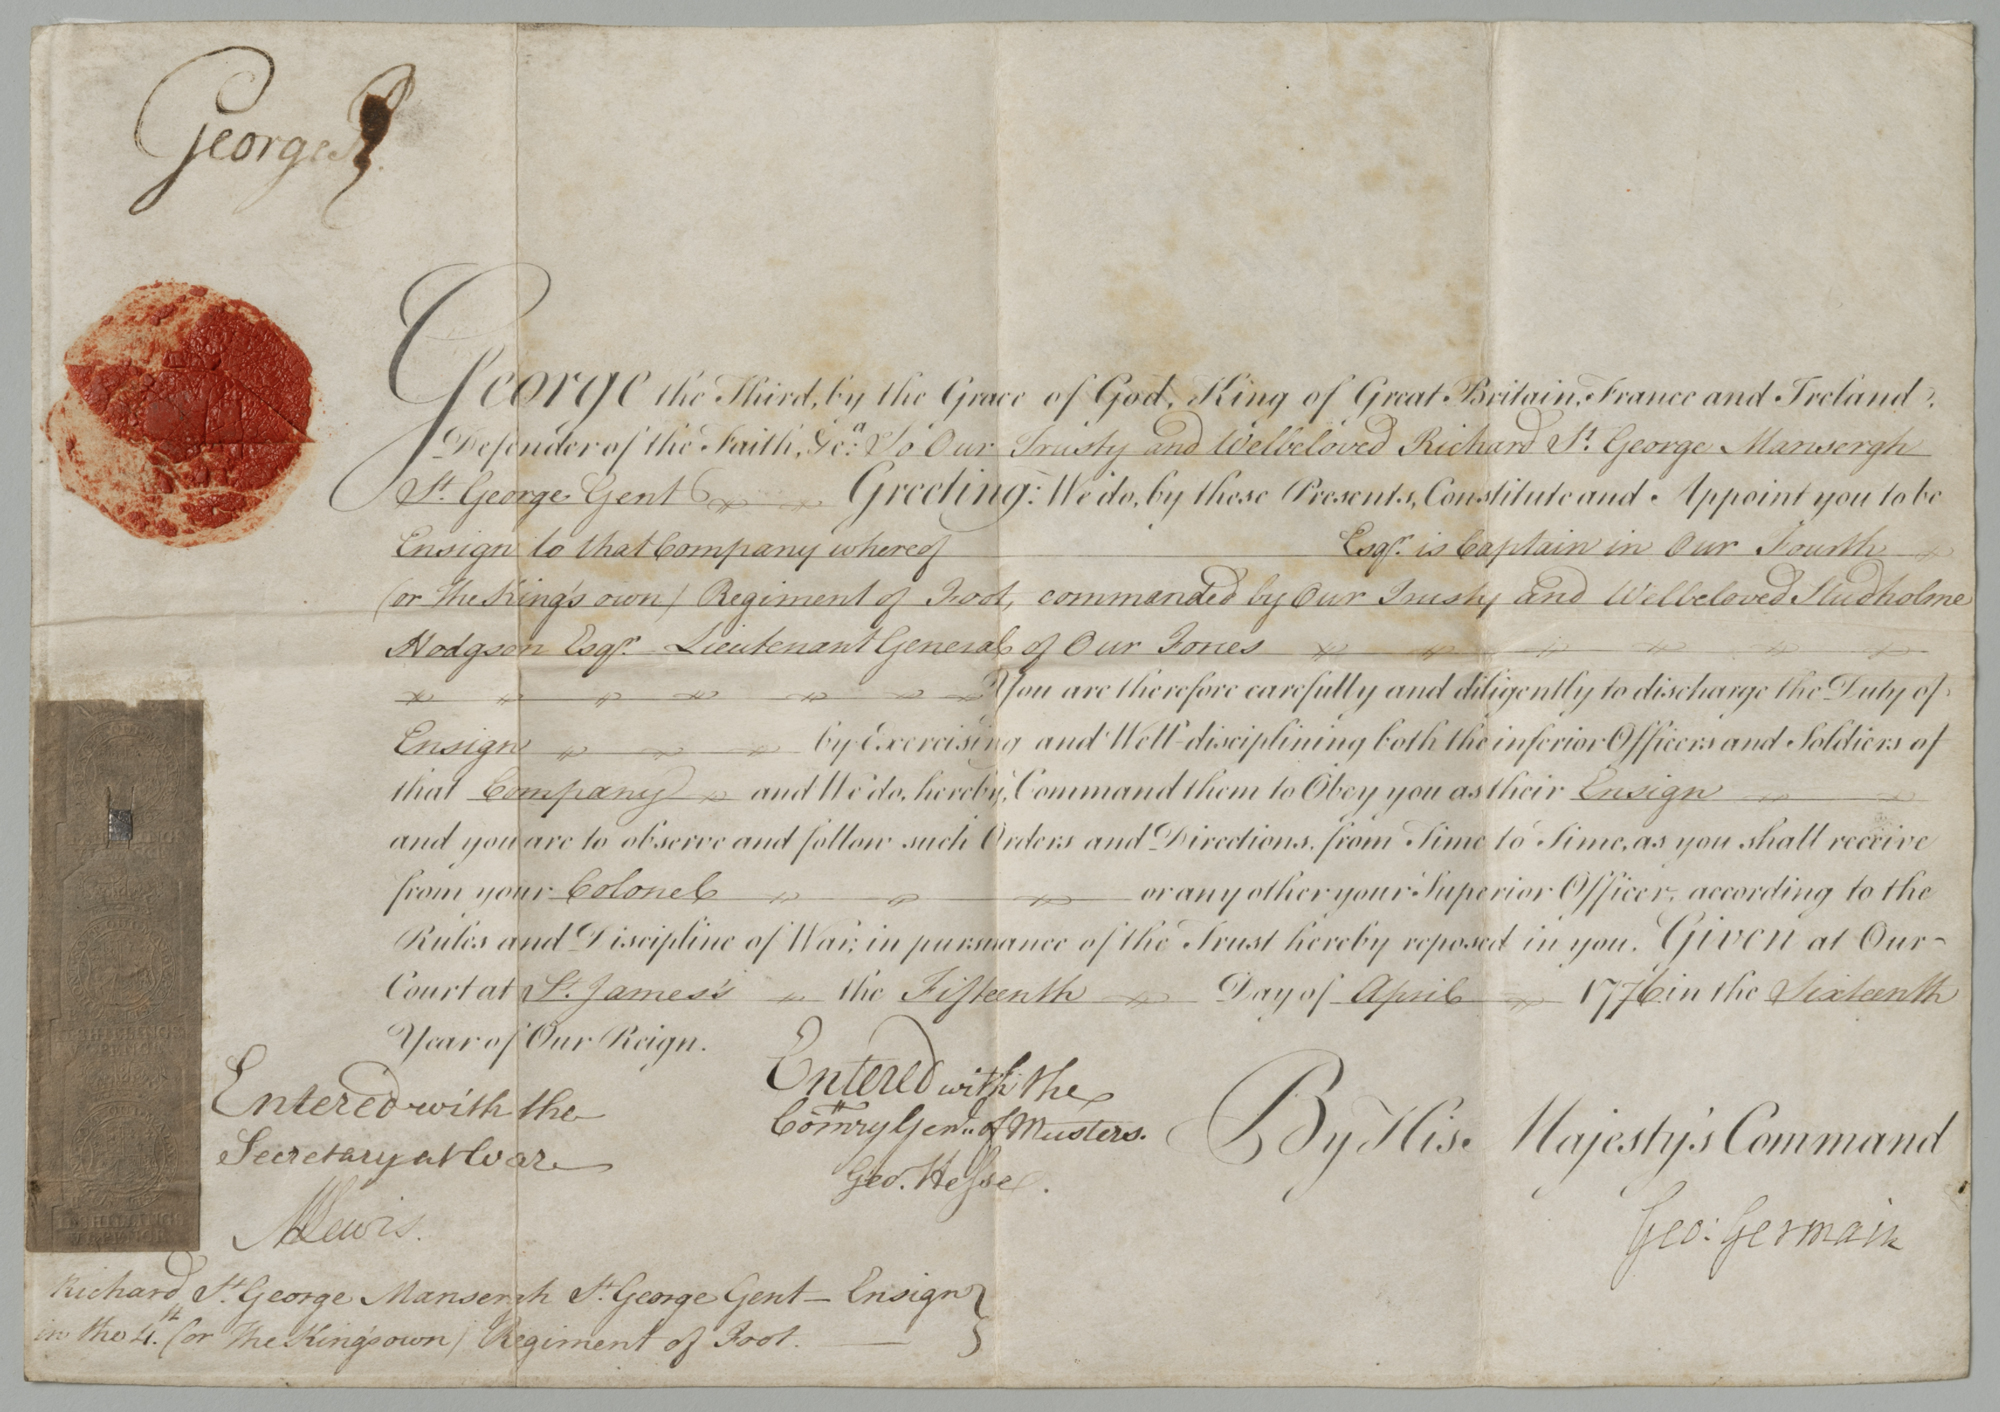 George R
George the Third, by the Grace of God, King of Great Britain, France and Ireland,
Defender of the Faith, &c.a To Our Trusty and Welbeloved Richard St. George Mansergh
St. George Gent Greeting: We do, by these Presents, Constitute and Appoint you to be
Ensign to that Company whereof Esqr. is Captain in Our Fourth
(or The King's own) Regiment of Foot, commanded by Our Trusty and Welbeloved Studholme
Hodgson Esqr. Lieutenant General of Our Forces
You are therefore carefully and diligently to discharge the Duty of
Ensign by Exercising and Well-disciplining both the inferior Officers and Soldiers of
that Company and We do, hereby, Command them to Obey you as their Ensign
and you are to observe and follow such Orders and Directions, from Time to Time, as you shall receive
from your Colonel or any other your Superior Officer, according to the
Rules and Discipline of War, in pursuance of the Trust hereby reposed in you. Given at Our
Court at St. James's the Fifteenth Day of April 1776 in the Sixteenth
Year of Our Reign.
Entered with the
Secretary at War
MLewis.
Entered with the
Commry Genl. of Musters.
Geo. Hesse.
By His Majesty's Command
Geo: Germain
Richard St. George Mansergh St. George Gent – Ensign
in the 4th. (or The King's own) Regiment of Foot.